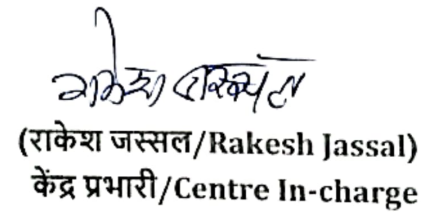 राकेश
(राकेश जस्सल/Rakesh Jassal)
केंद्र प्रभारी/Centre In-charge